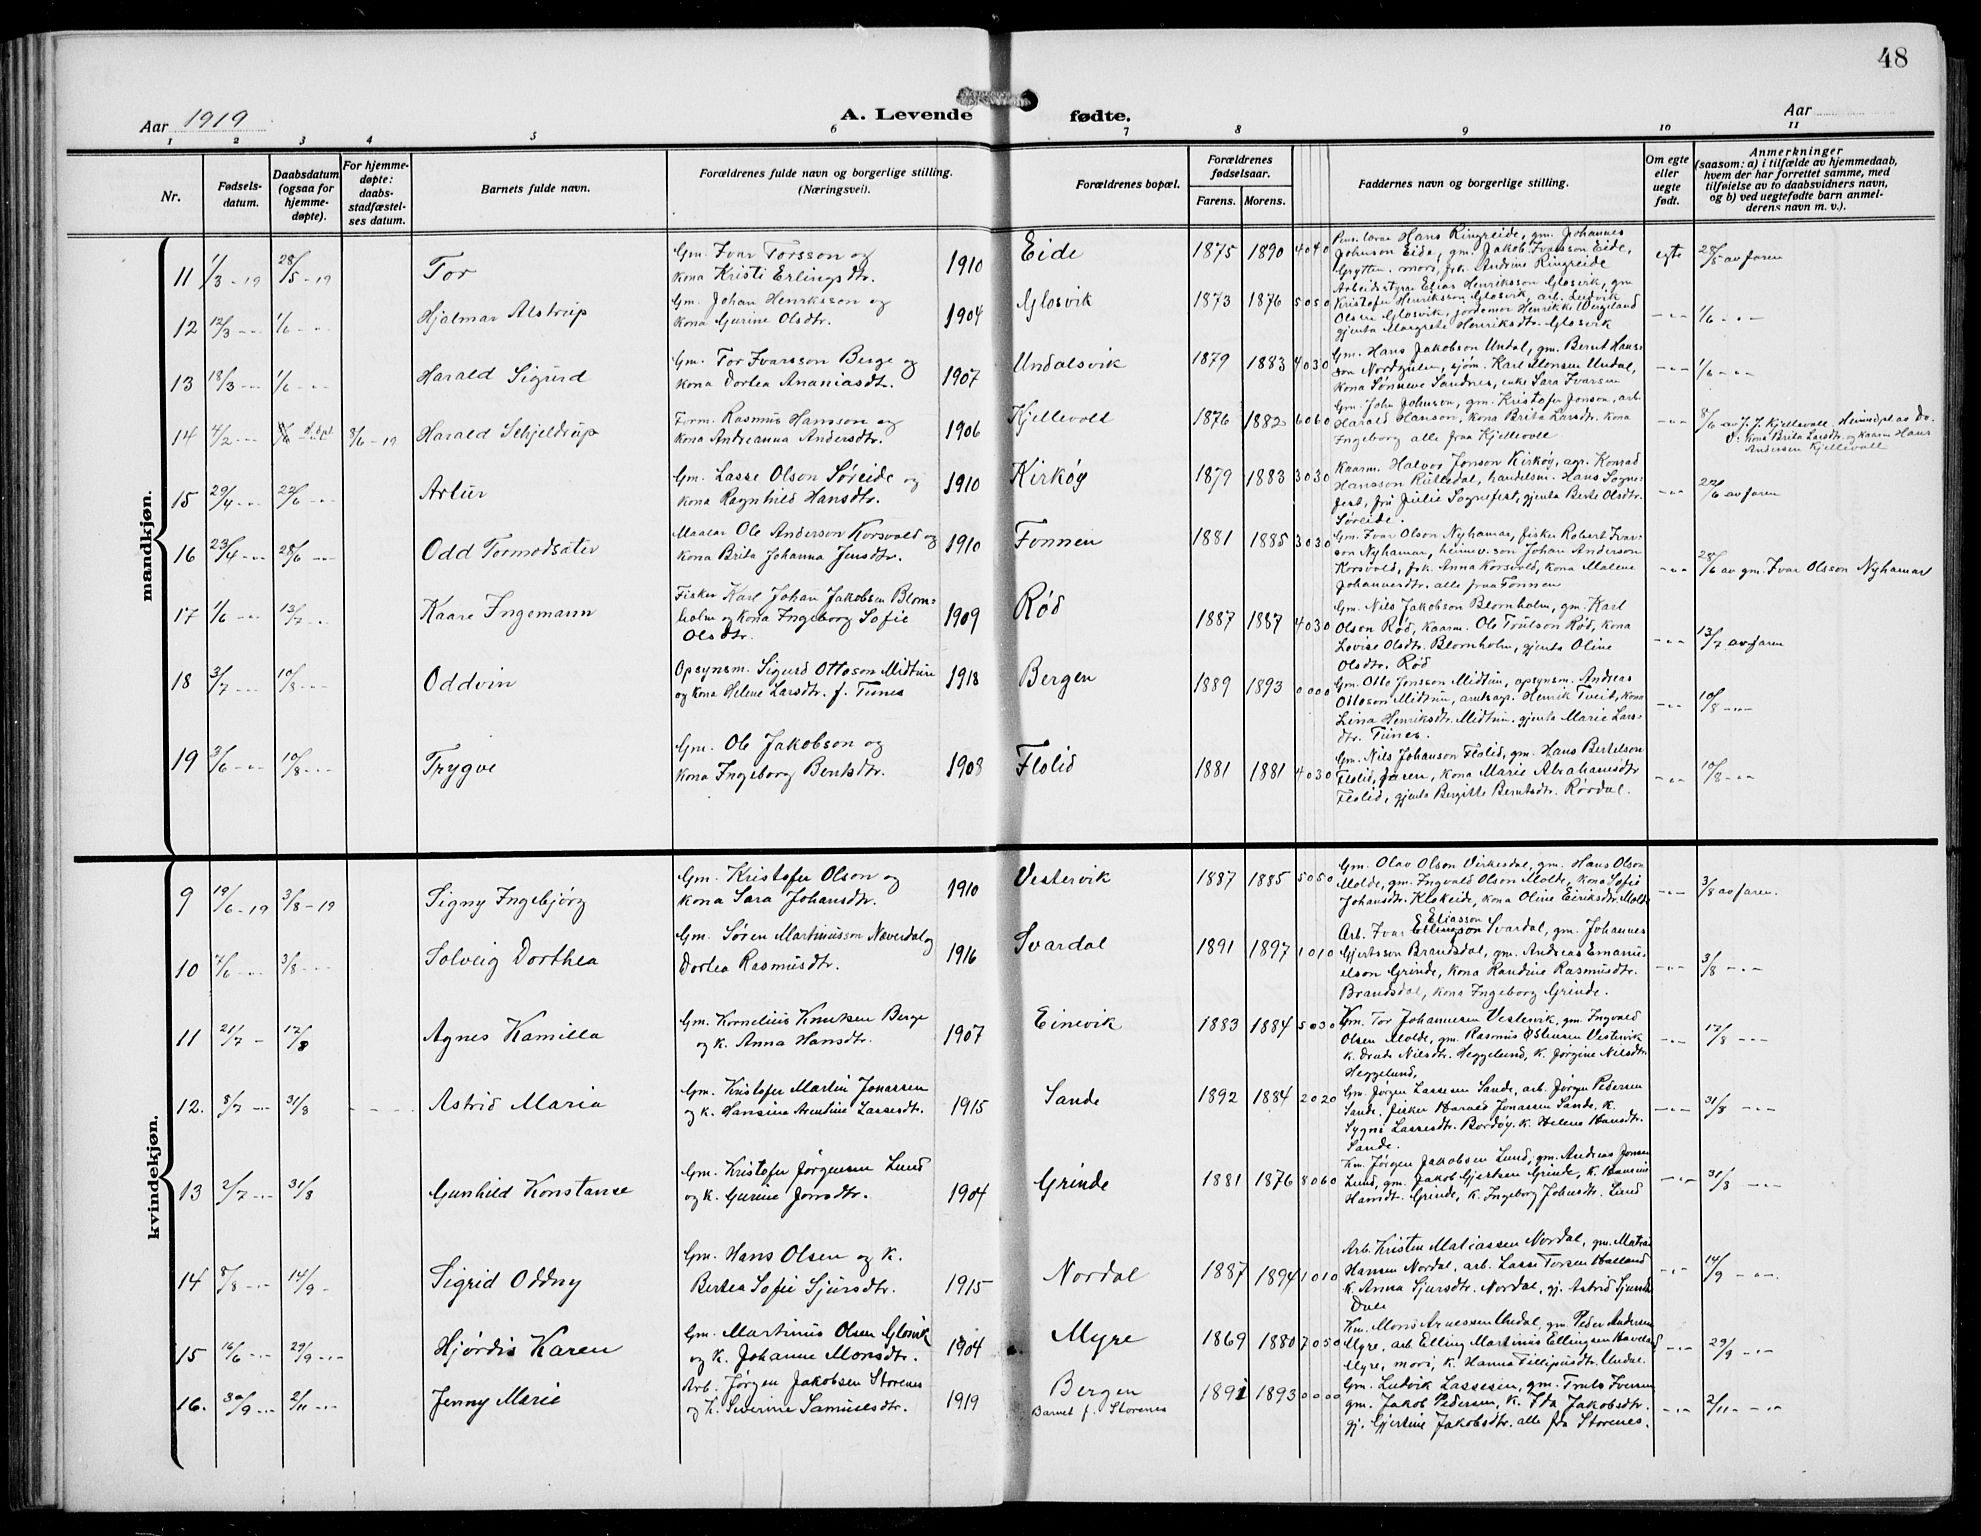 48
Aar 1919
A. Levende fødte.
Aar
1 2 3 4 5 6 7 8 9 10 11
Nr.
Fødsels-
datum.
Daabsdatum
(ogsaa for
hjemme-
døpte).
For hjemme-
døpte:
daabs-
stadfæstel-
ses datum.
Barnets fulde navn.
Forældrenes fulde navn og borgerlige stilling.
(Næringsvei).
Forældrenes bopæl.
Forældrenes
fødselsaar.
Farens. Morens.
Faddernes navn og borgerlige stilling.
Om egte
eller
uegte
født.
Anmerkninger
(saasom: a) i tilfælde av hjemmedaab,
hvem der har forrettet samme, med
tilføielse av to daabsvidners navn,
og b) ved uegtefødte barn anmel-
derens navn m. v.).
mandkjøn.
11 1/3 - 19 28/5 - 19 Tor
Gm. Ivar Torsson og
kona Kristi Erlingsdtr.
1910 Eide 1875 1890 4 0 4 0
Pens. lærar Hans Ringreide, gm. Johannes
Johnson Eide, gm. Jakob Ivarsson Eide,
Grytten. mori, frk. Andrine Ringreide
egte 28/5 av faren
12 12/3 - - 1/6 - - Hjalmar Alstrup
Gm. Johan Henriksson og
kona Gurine Olsdtr.
1904 Glosvik 1873 1876 5 0 5 0
Arbeidsstyrar Elias Henriksson Glosvik, gm
Kristofer Henriksson Glosvik, arb. Ludvik
Olsen Glosvik, jordemor Henrikke Wergeland
gjenta Margrete Henriksdtr. Glosvik
- - - 1/6 - - -
13 18/3 - - 1/6 - - Harald Sigurd
Gm. Tor Ivarsson Berge og
kona Dortea Ananiasdtr.
1907 Undalsvik 1879 1883 4 0 3 0
Gm. Hans Jakobson Undal, gm. Bernt Hans-
son Nordgulen, sjøm. Karl Monsen Undal,
kona Sønneve Sandnes, enke Sara Ivarsen
- - - 1/6 - - -
14 4/2 - - 8/6 - 19 Harald Schjeldrup
Form. Rasmus Hansson og
kona Andreanna Andersdtr.
1906 Kjellevold 1876 1882 6 0 6 0
Gm. John Johnson, gm. Kristofer Jonson, arb.
Harald Hanson, kona Brita Larsdtr. kona
Ingeborg alle fraa Kjellevold
- - - 8/6 av J. J. Kjellevoll. Heimdøpt av Do.
V: kona Brita Larsdtr. og kaarm Hans
Andersen Kjellevoll
15 29/4 - - 22/6 - - Artur
Gm. Lasse Olson Søreide og
kona Ragnhild Hansdtr.
1910 Kirkøy 1879 1883 3 0 3 0
Kaarm. Halvor Jonson Kirkøy, agr. Konrad
Hansson Kulledal, handelsm. Hans Sogne-
fest, fru Julie Sognefest, gjenta Berte Olsdtr.
Søreide.
- - - 22/6 av faren
16 23/4 - - 28/6 - - Odd Tormodsæter
Maalar Ole Anderson Korsvold og
kona Brita Johanna Jensdtr.
1910 Fonnen 1881 1885 3 0 3 0
Gm. Ivar Olson Nyhamar, fisker Robert Ivar-
son Nyhamar, heimev. son Johan Anderson
Korsvold, frk. Anna Korsvold, kona Malene
Johannesdtr. alle fraa Fonnen
- - - 28/6 av gm. Ivar Olsson Nyhamar
17 1/6 - - 13/7 - - Kaare Ingemann
Fisker Karl Johan Jakobsen Blom-
holm og kona Ingeborg Sofie
Olsdtr.
1909 Rød 1887 1887 4 0 3 0
Gm. Nils Jakobson Blomholm, gm. Karl
Olson Rød, kaarm. Ole Trulson Rød, kona
Lovise Olsdtr. Blomholm, gjenta Oline
Olsdtr. Rød
- - - 13/7 av faren
18 3/7 - - 10/8 - - Oddvin
Opsynsm. Sigurd Ottoson Midtun
og kona Helene Larsdtr. f. Tunes
1918 Bergen 1889 1893 0 0 0 0
Gm. Otto Jonsson Midtun, opsynsm. Andreas
Ottoson Midtun, amtsagr. Henrik Tveit, kona
Lina Henriksdtr. Midtun, gjenta Marie Lars-
dtr. Tunes.
- - - 10/8 - - -
19 3/6 - - 10/8 - - Trygve
Gm. Ole Jakobson og
kona Ingeborg Berntsdtr.
1908 Flolid 1881 1881 4 0 3 0
Gm. Nils Johanson Flolid, gm. Hans Bertelson
Flolid, faren, kona Marie Abrahamsdtr
Flolid, gjenta Bergitte Berntsdtr. Rørdal.
- - - 10/8 - - -
kvindekjøn.
9 19/6 - 19 3/8 - 19 Signy Ingebjørg
Gm. Kristofer Olson og
kona Sara Johansdtr.
1910 Vestervik 1887 1885 5 0 5 0
Gm. Olav Olson Virkesdal, gm. Hans Olson
Molde, gm. Ingvald Olson Molde, kona Sofie
Johansdtr. Klokeide, kona Oline Eiriksdtr. Molde
- - - 3/8 av faren.
10 7/6 - - 3/8 - - Solveig Dorthea
Gm. Søren Martinusson Næverdal og
Dortea Rasmusdtr.
1916 Svardal 1891 1897 1 0 1 0
Eliasson
Arb. Ivar Ellingson Svardal, gm. Johannes
Gjertsson Brandsdal, gm. Andreas Emanu-
elson Grinde, kona Randine Rasmusdtr.
Brandsdal, kona Ingeborg Grinde.
- - - 3/8 - - -
11 21/7 - 17/8 Agnes Kamilla
Gm. Kornelius Knutsen Berge
og k. Anna Hansdtr.
1907 Einevik 1883 1884 5 0 3 0
Gm. Tor Johannesen Vestervik, gm. Ingvald
Olsen Molde, gm. Rasmus Østensen Vestervik
k. Drude Nilsdtr. Heggelund, k. Jørgine Nilsdtr.
Heggelund.
- - - 17/8 - - -
12. 8/7 - - 31/8 - - - Astrid Maria
Gm. Kristofer Martin Jonassen
og k. Hansine Arntine Lassesdtr.
1915 Sande 1892 1884 2 0 2 0
Gm. Jørgen Lassesen Sande, arb. Jørgen Pedersen
Sande, fisker Harald Jonassen Sande, k.
Sygni Lassesdtr. Bordøy, k. Helene Hansdtr.
Sande.
- - - 31/8 - - -
13 2/7 - - 31/8 Gunhild Konstanse
Gm. Kristofer Jørgensen Lund
og k. Gurine Jonsdtr.
1904 Grinde 1881 1876 8 0 6 0
Km. Jørgen Jakobsen Lund, gm. Andreas Jonsen
Lund, gm. Jakob Gjertsen Grinde, k. Hansine
Hansdtr. Grinde, k. Ingeborg Johnsdtr. Lund
- - - 31/8 - - -
14 8/8 - - 14/9 - Sigrid Oddny
Gm. Hans Olsen og k.
Bertea Sofie Sjursdtr.
1915 Nordal 1887 1894 1 0 1 0
Arb. Kristen Matiassen Nordal, gm. Matias
Hansen Nordal, arb. Lasse Torsen Halland
k. Anna Sjursdtr. Nordal, gj. Astrid Sjursdtr
Dale
- - - 14/9 - - -
15 16/6 - - 29/9 - - Hjørdis Karen
Gm. Martinus Olsen Glosvik
og k. Johanne Monsdtr.
1904 Myre 1869 1880 7 0 5 0
Km. Mons Arnessen Undal, gm Peder Andersen
Myre, arb. Elling Martinus Ellingsen Haveland
Myre, mori, k. Hanna Fillipusdtr. Undal.
- - - 29/9 - - -
16. 30/9 - - 2/11 - - Jenny Marie
Arb. Jørgen Jakobsen Storenes
og k. Severine Samuelsdtr.
1919 Bergen
Barnet f. Storenes
1891 1893 0 0 0 0
Gm. Ludvik Lassesen, gm. Truls Iversen
gm. Jakob Pedersen, k. Ida Jakobsdtr.
gj. Gjertine Jakobsdtr. alle fra Storenes.
- - - 2/11 - - -